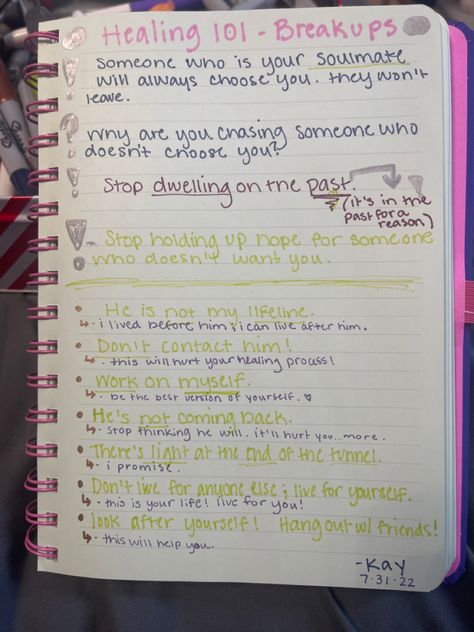 Healing 101 - Breakups
Someone who is your soulmate
will always choose you. they won't
leave.
Why are you chasing someone who
doesn't choose you?
Stop dwelling on the past.
(it's in the
past for a
reason)
- Stop holding up hope for someone
who doesn't want you.
• He is not my lifeline.
↳ - i lived before him ; i can live after him.
• Don't contact him!
↳ - this will hurt your healing process!
• Work on myself.
↳ - be the best version of yourself. ♡
• He's not coming back.
↳ - Stop thinking he will. it'll hurt you...more.
• There's light at the end of the tunnel.
↳ - i promise.
• Don't live for anyone else ; live for yourself.
↳ - this is your life! live for you!
• look after yourself! Hang out w/ friends!
↳ - this will help you.
- Kay
7-31-22